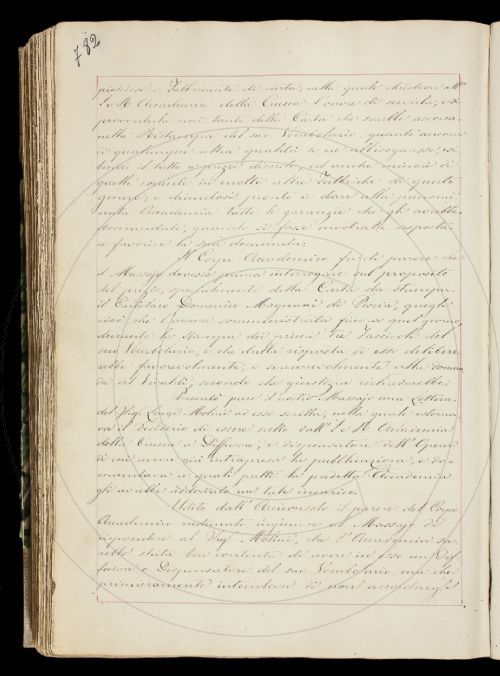 782
pistoiese e Fabbricante di carta, nella quale chiedeva all'
I. e R. Accademia della Crusca l'onore di servirla, e di
provvederle non tanto della Carta che sarebbe occorsa
nella Ristampa del suo Vocabolario, quanto ancora
di qualunque altra qualità le ne abbisognasse;
il tutto a prezzi discreti, ed anche minori di
quelli correnti in molte altre Fabbriche di questo
genere; e dicendosi pronto a dare alla prenomi-
nata Accademia tutte le garanzie che gli avrebbe
domandate, quando si fosse mostrata disposta
a favorire la sua domanda:
Il Corpo Accademico fu di parere che
il Massajo dovesse prima interrogare sul proposito
del prezzo, della Carta da stampa
il Cartolaro Domenico Magnani di Pescia, quegli
cioè che l'aveva somministrata fino a quel giorno
durante la stampa dei primi tre Fascicoli del
suo Vocabolario, e che dalla risposta di esso delibere-
rebbe favorevolmente, o sfavorevolmente alla doman-
da del Vivaldi, secondo che giustizia richiederebbe:
Presentò pure l'istesso Massajo una Lettera
del Sig. Luigi Molini ad esso scritta, nella quale esterna-
va il desiderio di essere scelto dall'I. e R. Accademia
della Crusca a Diffusore, e dispensatore dell'Opera
di cui aveva già intrapresa la pubblicazione, e do-
mandava a quali patti la predetta Accademia
gli avrebbe addossato un tale incarico.
Udito dall'Arciconsolo il parere del Corpo
Accademico ingiunse al Massajo di
rispondere al Sig. Molini, che l'Accademia sa-
rebbe stata ben contenta di avere in esso un Dif-
fusore e Dispensatore del suo Vocabolario, ma che
primieramente intendeva di non accordargli